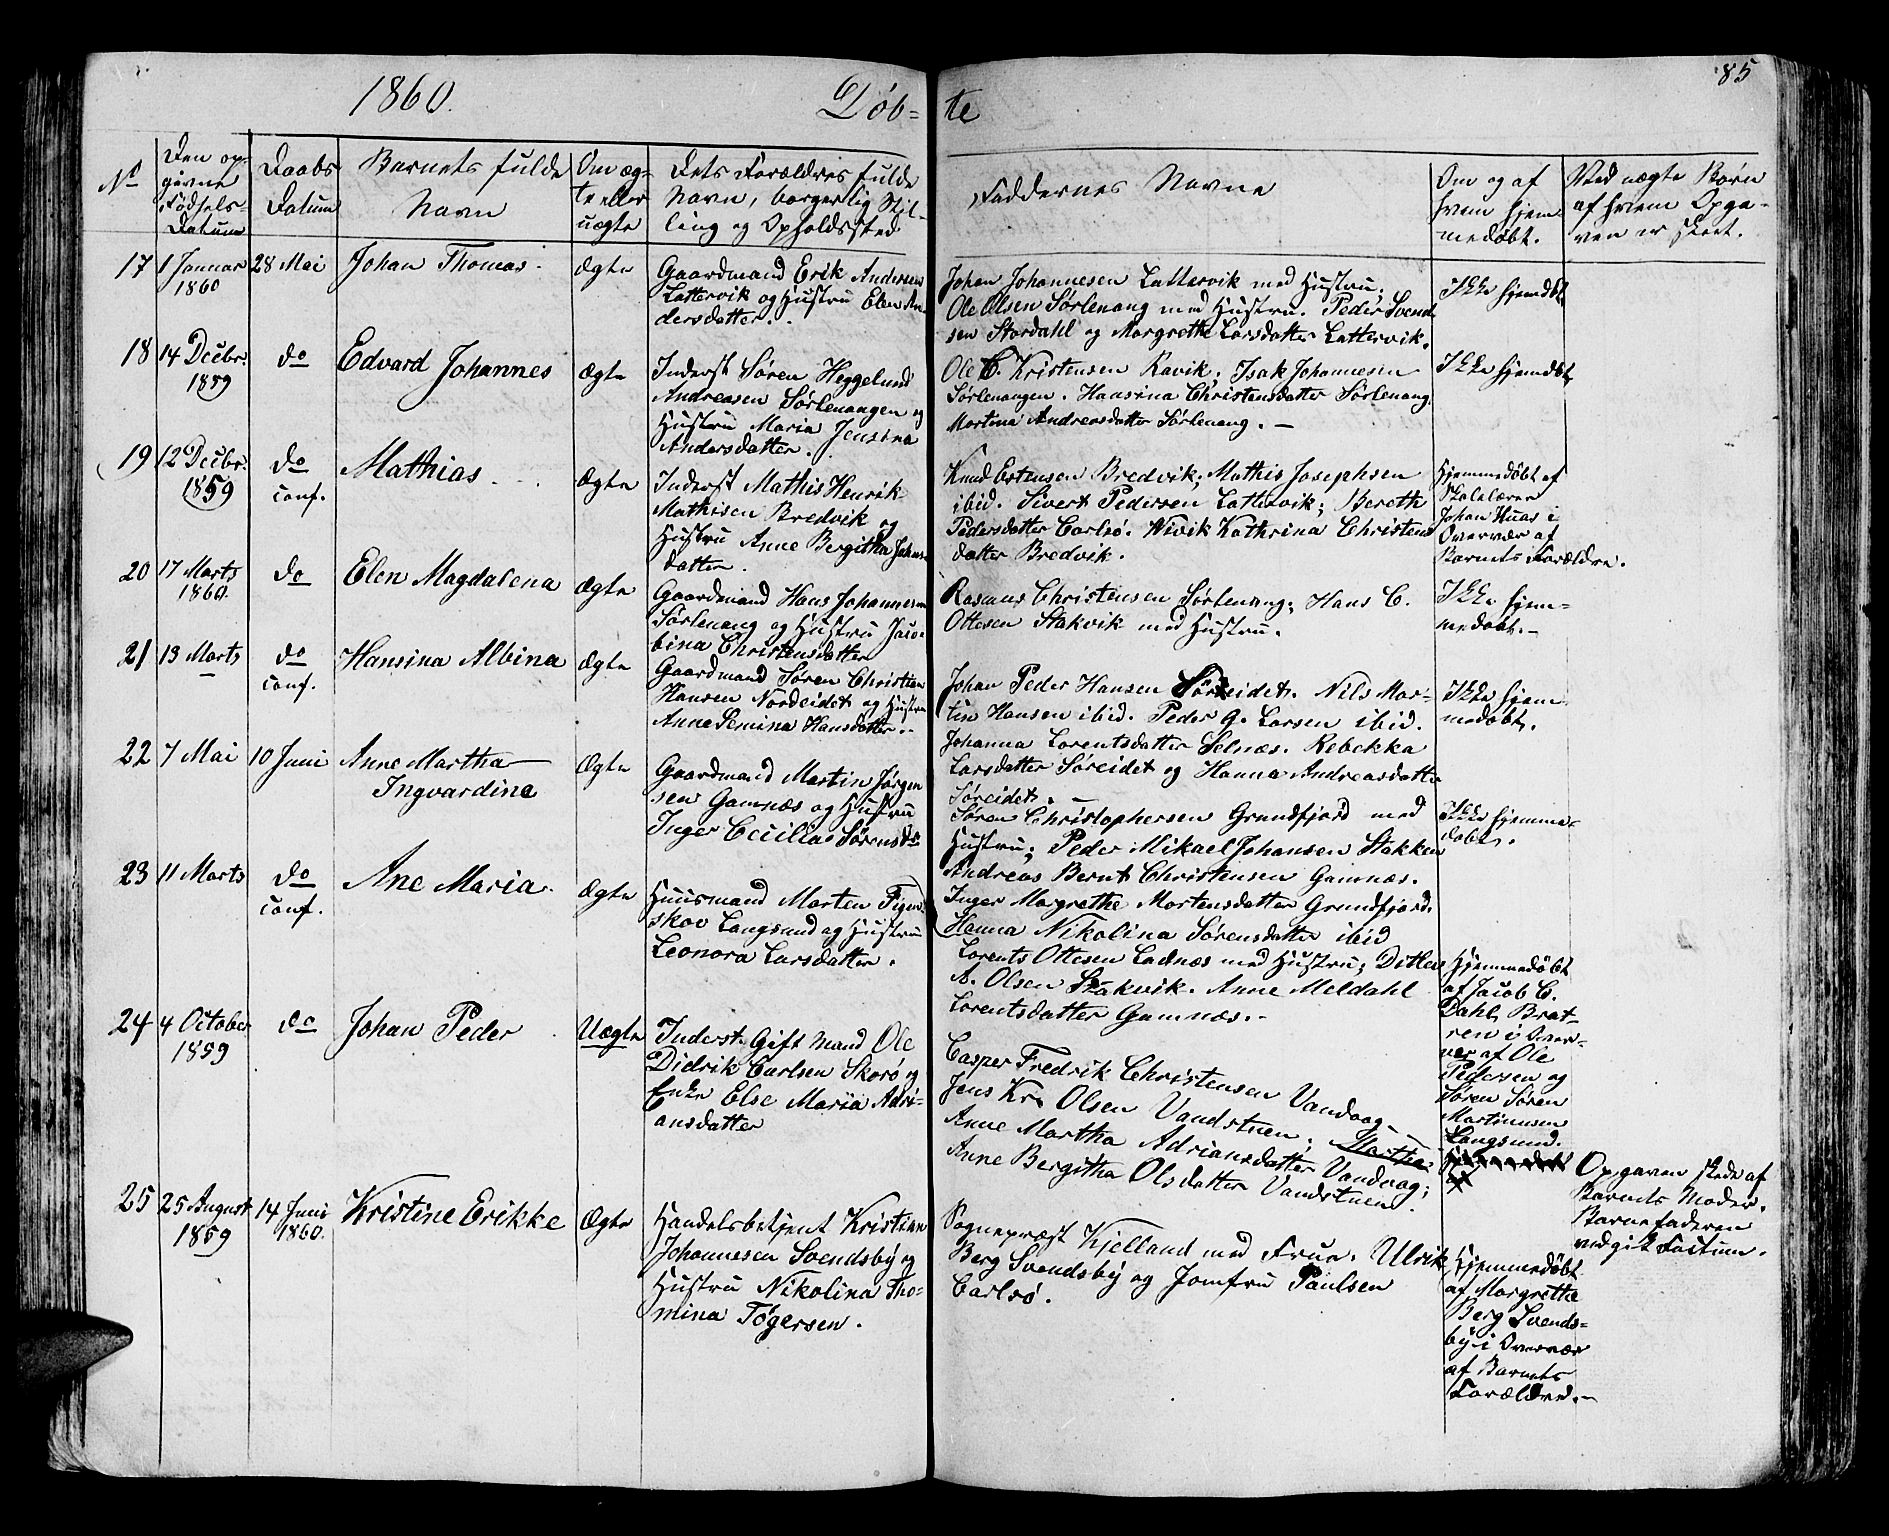 1860. Døb= te 85
No
Den op-
givne
Fødsels-
Datum
Daabs
Datum
Barnets fulde
Navn
Om æg-
te eller
uægte
Dets Forældres fulde
Navn, borgerlig Stil-
ling og Opholdssted
Faddernes Navne
Om og af
hvem hjem-
medøbt.
Ved uægte Børn
af hvem Opga-
ven er skeet.
17 1 Januar 28 Mai Johan Thomas. Ægte
1860
Gaardmand Erik Andersen
Lattervik og Hustru Elen An-
dersdatter.
Johan Johannesen Lattervik med Hustru;
Ole Olsen Sørlenang med Hustru. Peder Svend-
sen Stordahl og Margrethe Larsdatter Lattervik.
Ikke hjemdøbt
18 14 Decbr. do Edvard Johannes Ægte
1859
Inderst Søren Heggelund
Andreasen Sørlenangen og
Hustru Maria Jensina
Andersdatter.
Ole C. Kristensen Ravik; Isak Johannesen
Sørlenangen. Hansina Christensdatter Sørlenang.
Martina Andreasdatter Sørlenang. —
Ikke hjemdøbt
19 12 Decbr. do Mathias Ægte
1859 conf.
Inderst Mathis Henrik
Mathisen Bredvik og
Hustru Anne Bergitha Johans
datter.
Knud Estensen Bredvik; Mathis Josephsen
ibid. Sivert Pedersen Lattervik; Bereth
Pedersdatter Carlsø. Wivik Kathrina Christens
datter Bredvik.
Hjemmedøbt af
Skolelærer
Johan Huas i
Overvær af
Barnets Forældre.
20 17 Marts do Elen Magdalena Ægte
1860.
Gaardmand Hans Johannesen
Sørlenang og Hustru Jaco-
bina Christensdatter
Rasmus Christensen Sørlenang; Hans C.
Ottesen Stakvik med Hustru.
Ikke hjem-
medøbt.—
21 13 Marts do Hansina Albina Ægte
conf.
Gaardmand Søren Christian
Hansen Nordeidet og Hustru
Anne Pemina Hansdatter.
Johan Peder Hansen Søreidet. Nils Mar-
tin Hansen ibid. Peder G. Larsen ibid.
Johanna Lorentsdatter Selnæs. Rebekka
Larsdatter Søreidet og Hanna Andreasdatter
Søreidet. —
Ikke hjem-
medøbt.
22 7 Mai 10 Juni Anne Martha Ægte
Ingvardine
Gaardmand Martin Jørgen
sen Gamnæs og Hustru
Inger Cecilia Sørensdr
Søren Christophersen Grundfjord med
Hustru; Peder Mikael Johansen Stakken
Andreas Bernt Christensen Gamnæs.
Inger Margrethe Mortensdatter Grundfjord.
Hanna Nikolina Sørensdatter ibid
Ikke hjemme-
døbt.
23 11 Marts do Ane Maria. Ægte
conf.
Huusmand Morten Figen-
skov Langsund og Hustru
Leonora Larsdatter.
Lorents Ottesen Ladnæs med Hustru; Ditlev
A. Olsen Stakvik. Anne Meldahl
Lorentsdatter Gamnæs.—
Hjemmedøbt
af Jacob C.
Dahl, Brat-
ren i Over-
vær af Ole
Pedersen og
Søren Søren
Martinusen
Langsund.
24 4 October do Johan Peder Uægte
1859
Inderst. Gift Mand Ole
Didrik Carlsen Skorø og
Enke Else Maria Adri-
ansdatter
Casper Fredrik Christensen Vandvag
Jens Kr. Olsen Vandstuen; Martha
Anne Martha Adriansdatter Vandvag;
Anne Bergitha Olsdatter Vandstuen.
Opgaven skede af
Barnets Moder.
Barnefaderen
vedgik Factum.
25 25 August 14 Juni Kristine Erikke Ægte
1859 1860.
Handelsbetjent Kristian
Johannesen Svendsby og
Hustru Nikolina Tho-
mina Tøgersen.
Sognepræst Kjelland med Frue. Ulrik
Berg Svendsby og Jomfru Paulsen
Carlsø.
Hjemmedøbt
af Margrethe
Berg Svends-
by i Overvær
af Barnets
Forældre.—